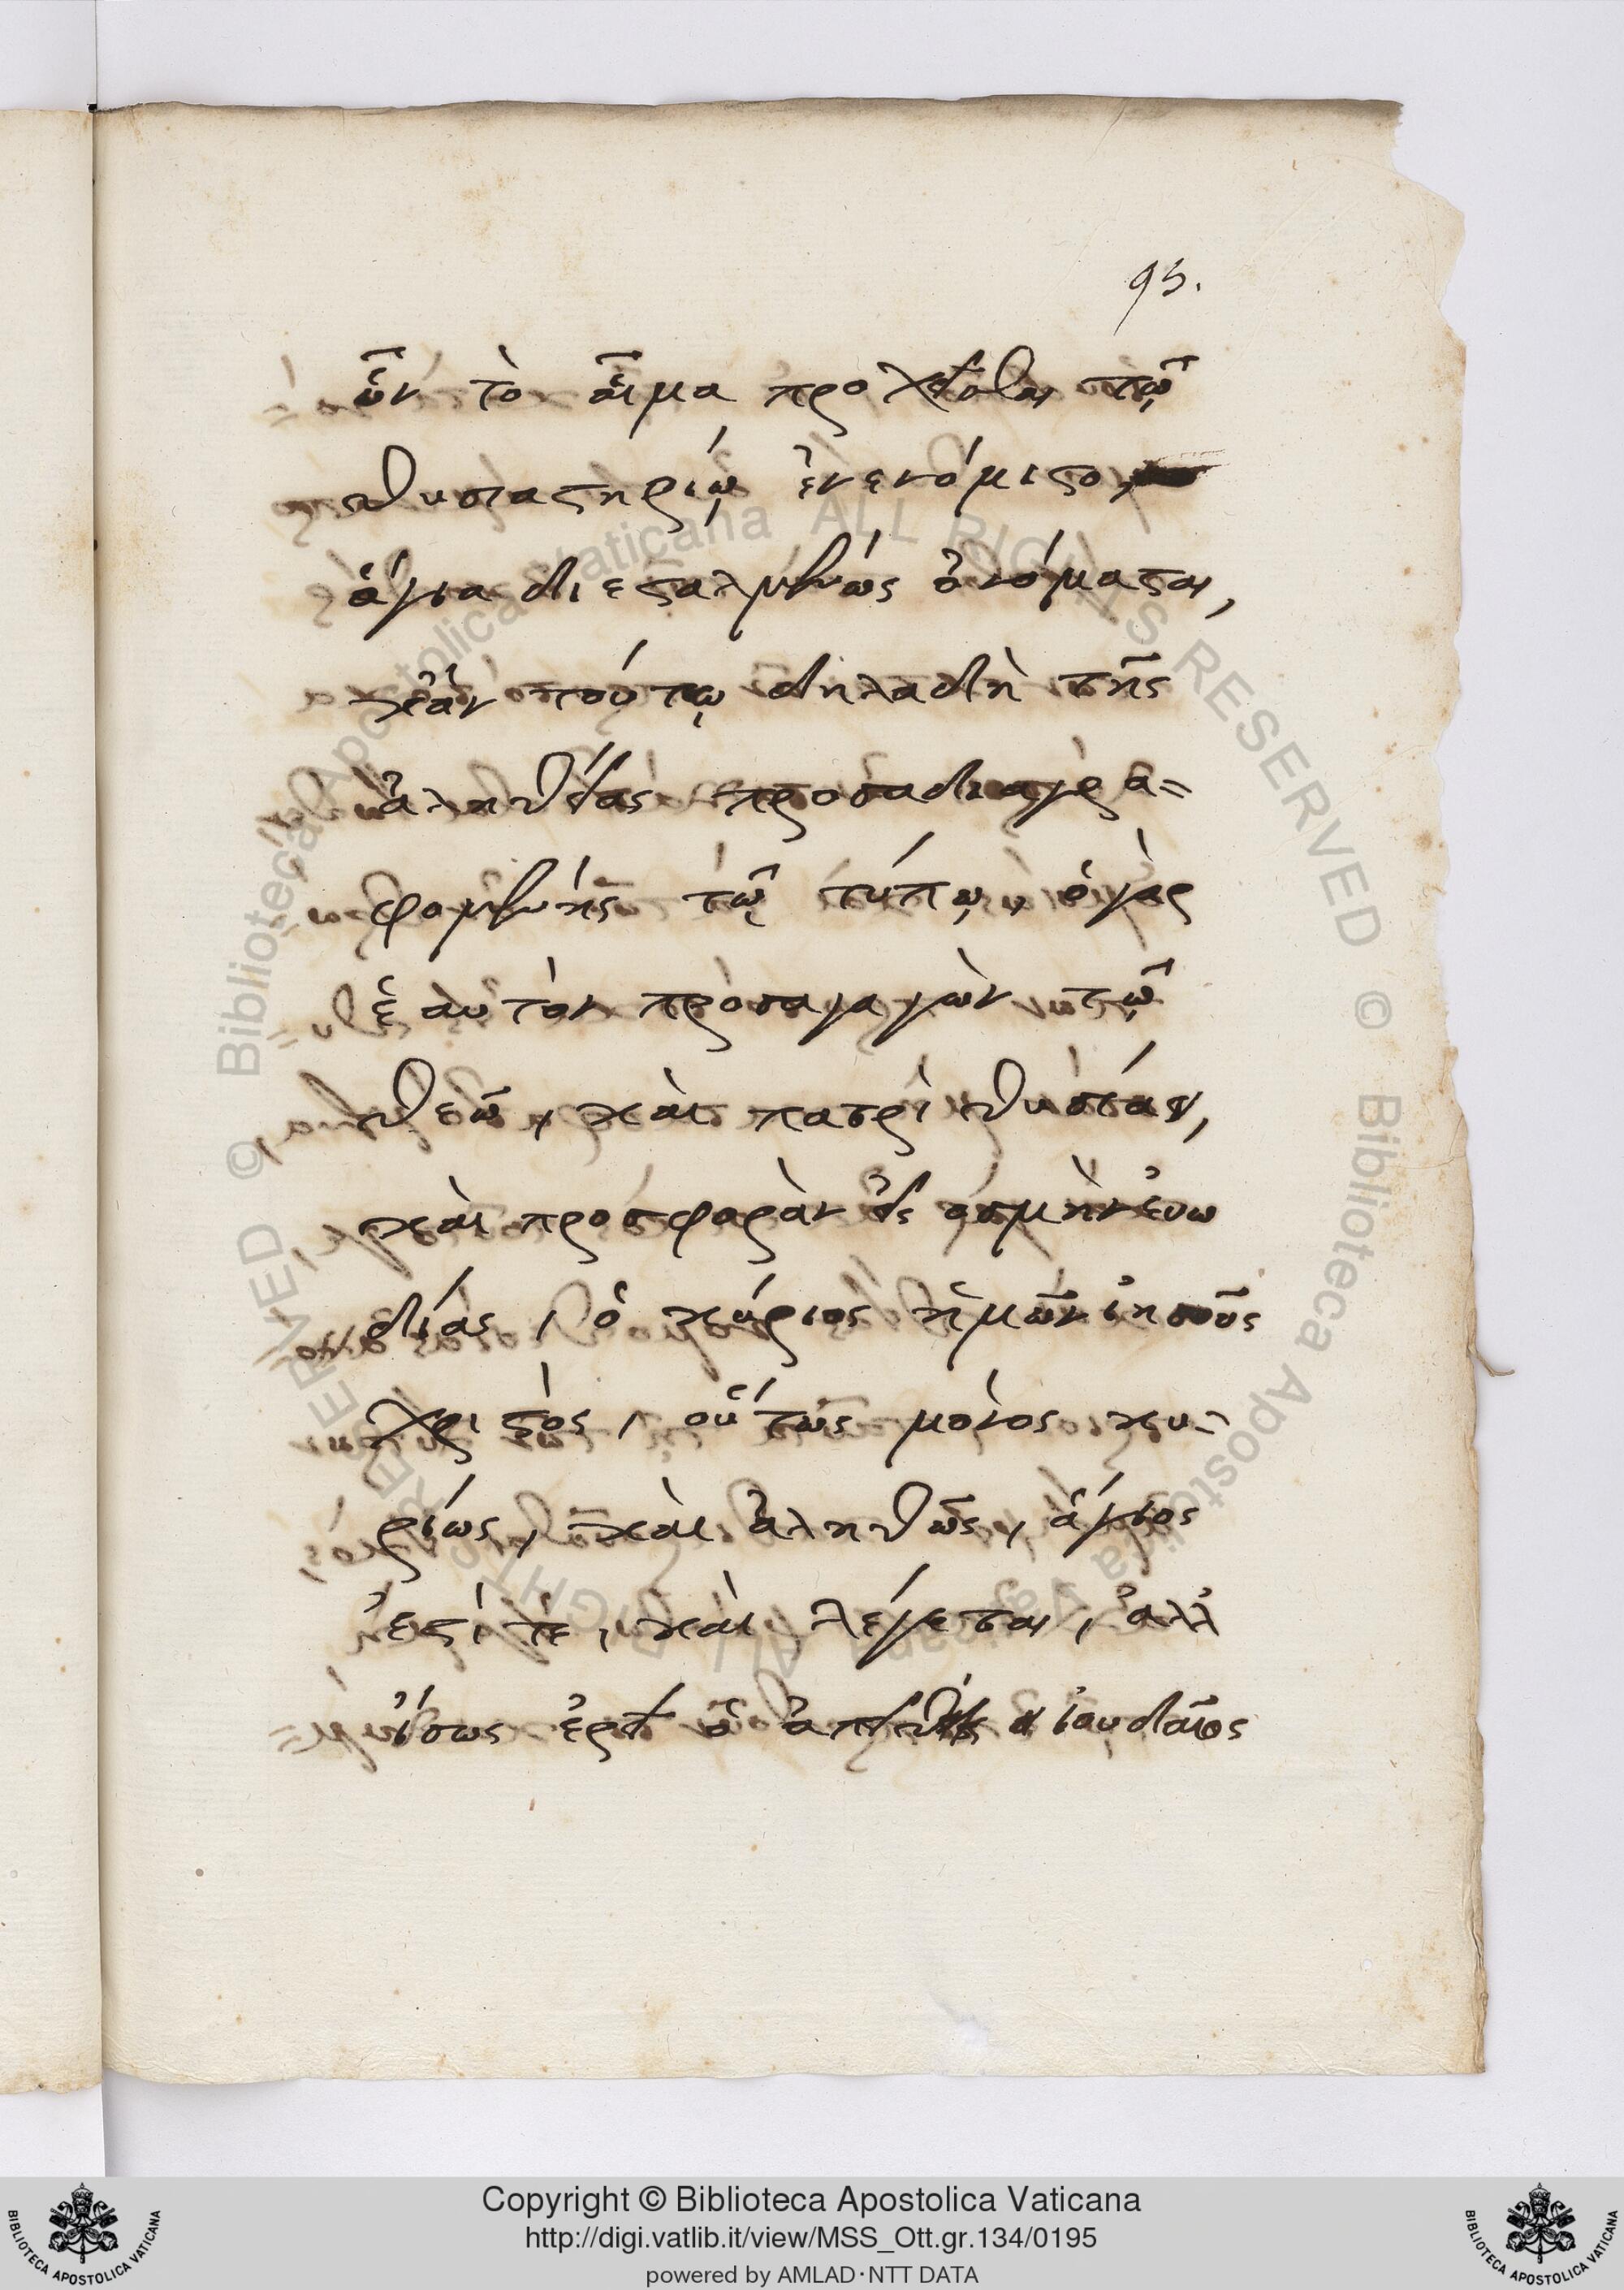 95.
ὧν τὸ αἷμα προχεῖσθαι τῷ
θυσιαστηρίῳ ἐνενόμιστο,
ἅγια διεσταλμένως ὀνόμασται,
κἂν τούτῳ δηλαδὴ τῆς
ἀληθείας προσαδιαγρα=
φομένης τῷ τύπῳ, ὁ γὰρ
ἑαυτὸν προσαγαγὼν τῷ
θεῷ, καὶ πατρὶ θυσίαν,
καὶ προσφορὰν εἰς ὀσμὴν ἐυω
δίας, ὁ κύριος ἡμῶν ἰησοῦς
χριστὸς, οὕτως μόνος κυ-
ρίως, καὶ ἀληθῶς, ἅγιος
ἐστί τε, καὶ λέγεται, ἀλλ
ἴσως ἐρεῖ ὁ ἀπειθὴς ἰουδαῖος
Copyright © Biblioteca Apostolica Vaticana
http://digi.vatlib.it/view/MSS_Ott.gr.134/0195
powered by AMLAD·NTT DATA
BIBLIOTECA APOSTOLICA VATICANA
BIBLIOTECA APOSTOLICA VATICANA
© Biblioteca Apostolica Vaticana ALL RIGHTS RESERVED
© Biblioteca Apostolica Vaticana ALL RIGHTS RESERVED